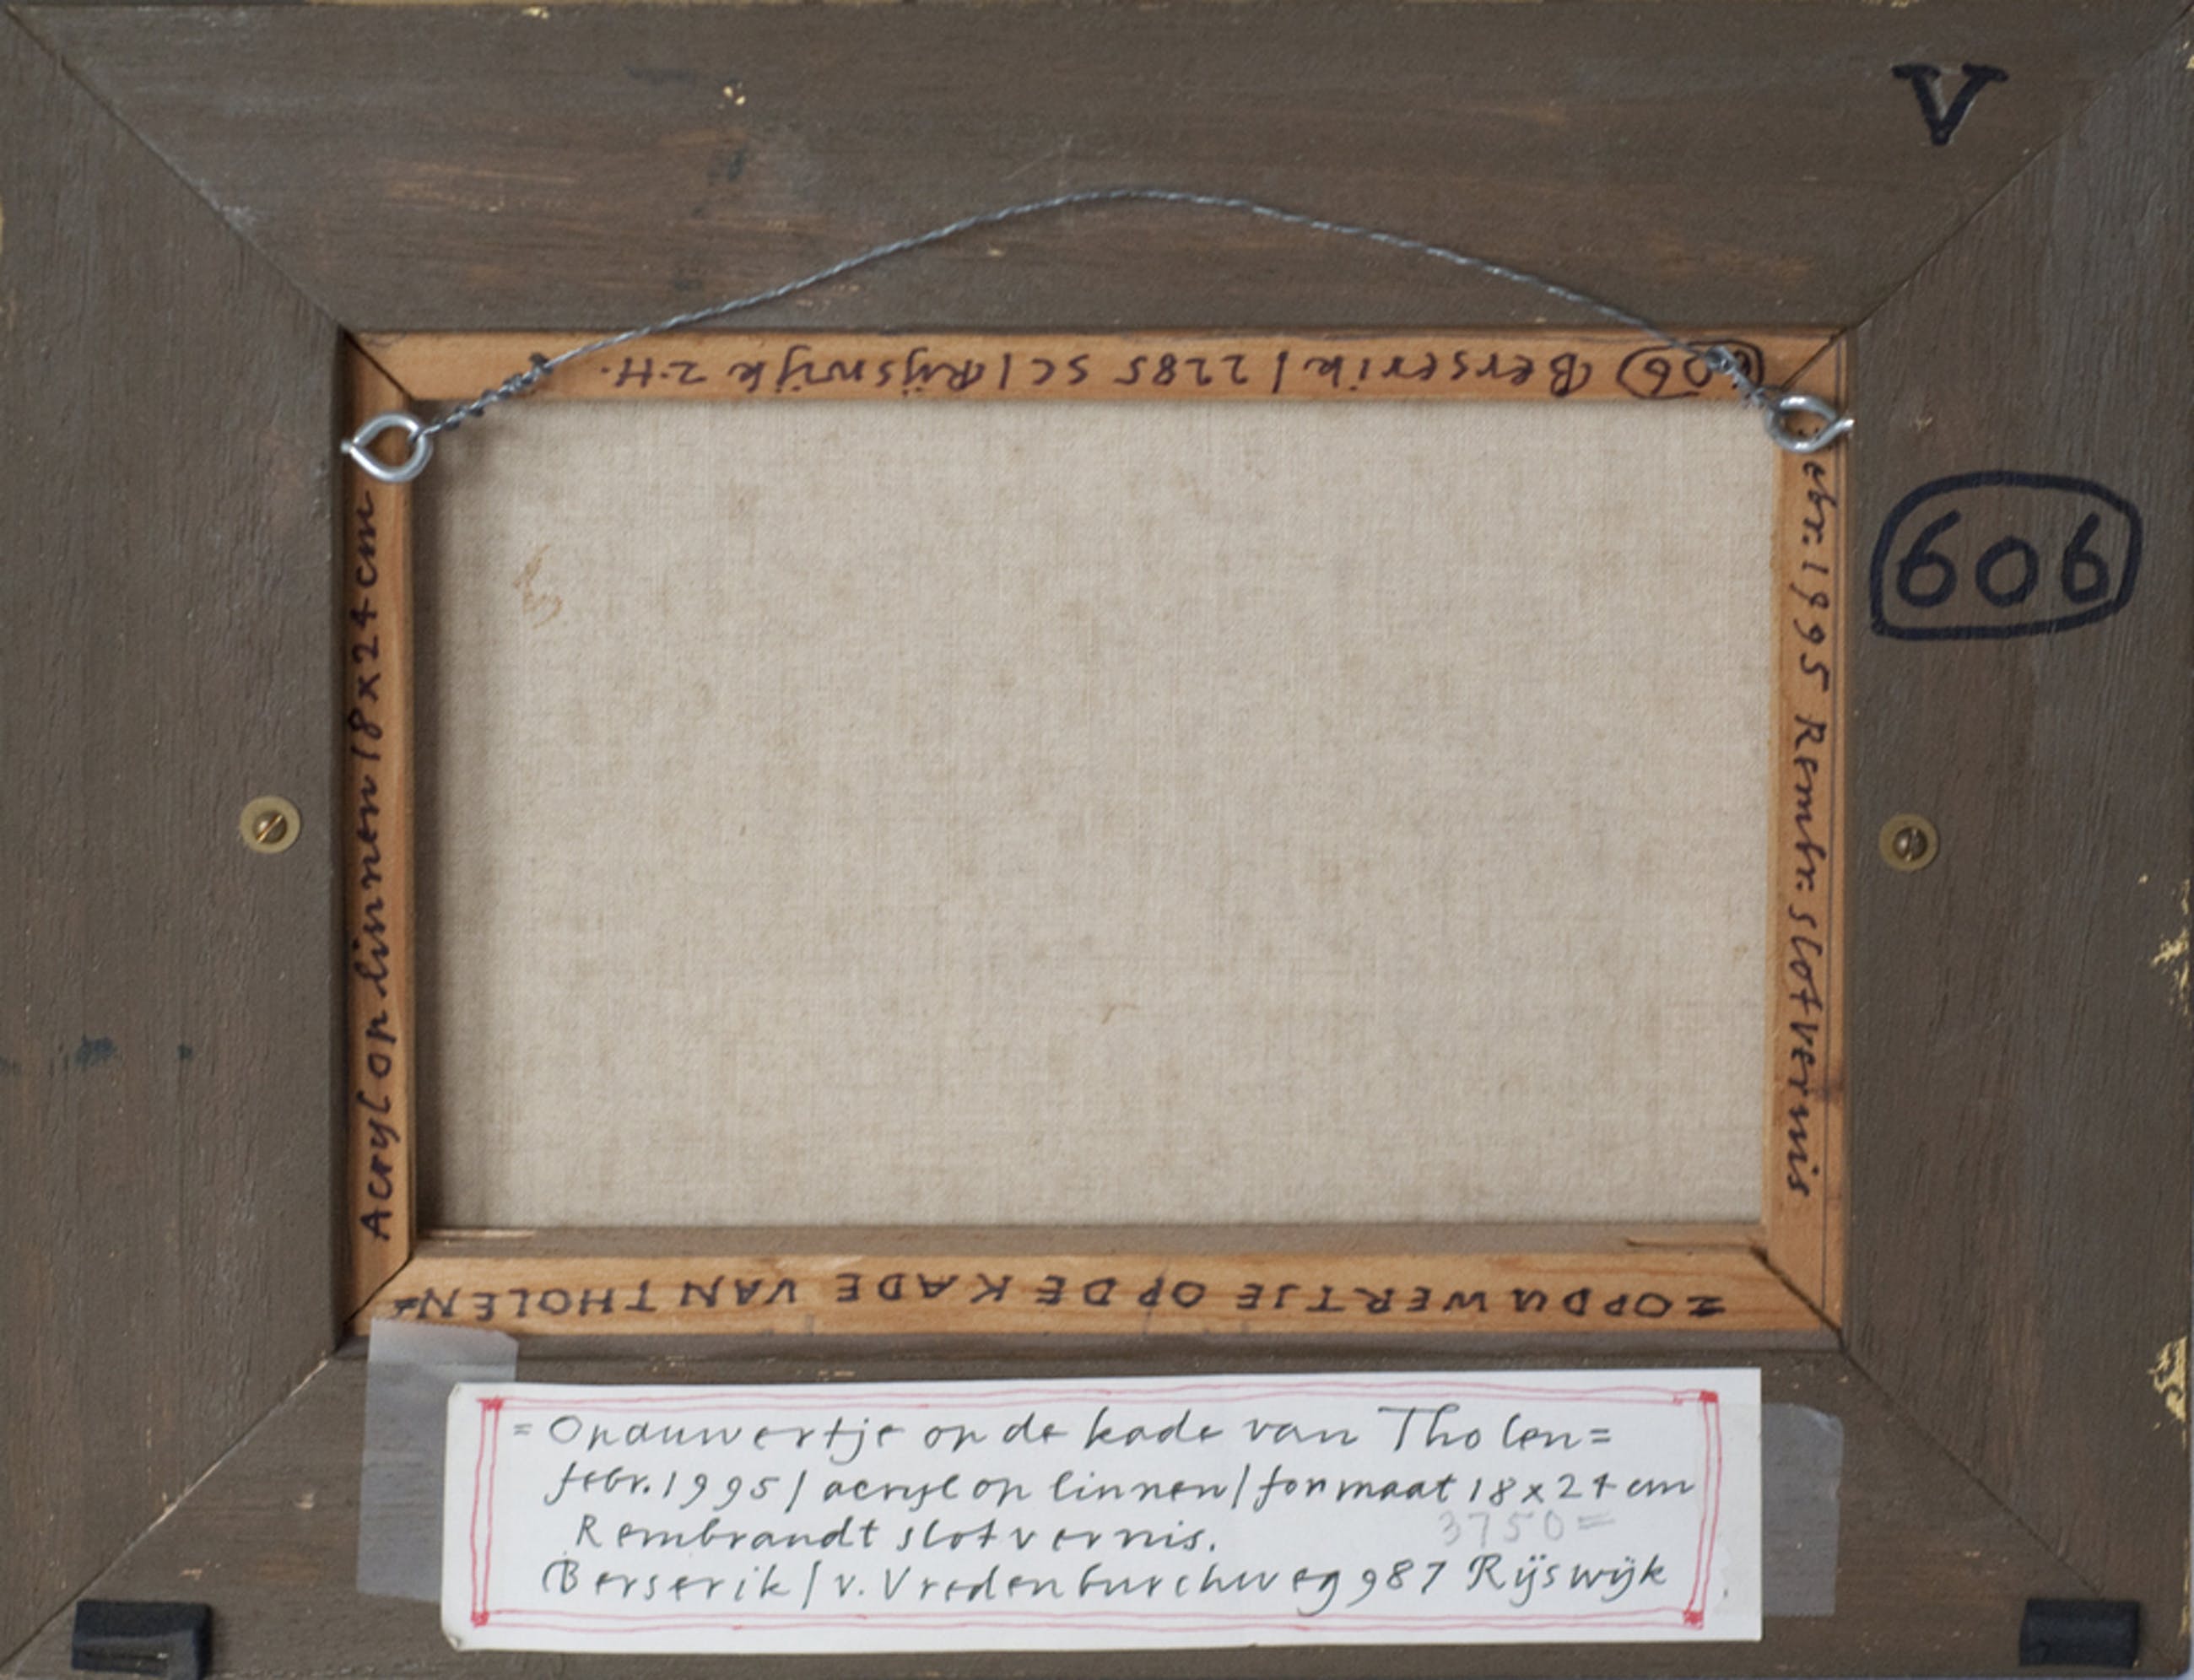 V
606 Berserik / 2285 SC / Rijswijk Z.H.
606
Acryl op linnen 18 x 24 cm
febr. 1995 Rembr. slotvernis
=OPDUWERTJE OP DE KADE VAN THOLEN=
= Opduwertje op de kade van Tholen=
febr. 1995 / acryl op linnen / formaat 18 x 24 cm
Rembrandt slotvernis.
3750=
Berserik / v. Vredenburchweg 987 Rijswijk